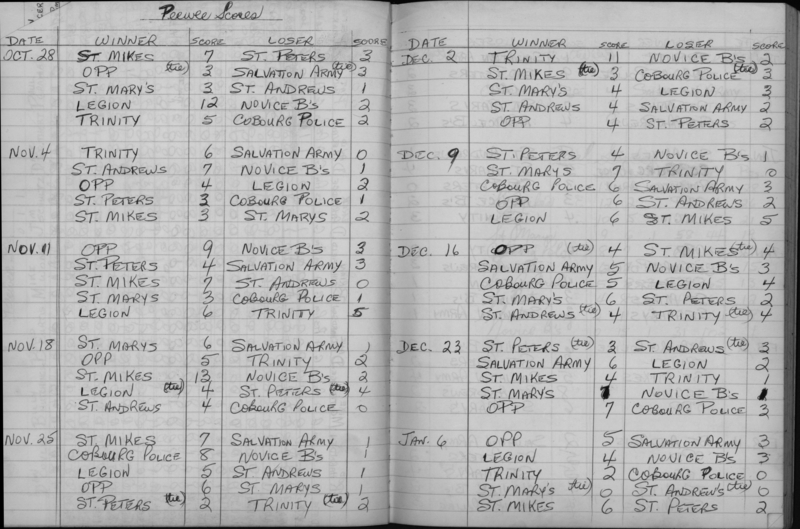 Peewee Scores
DATE WINNER SCORE LOSER SCORE
OCT. 28 ST. MIKES 7 ST. PETERS 3
OPP (tie) 3 SALVATION ARMY (tie) 3
ST. MARY'S 3 ST. ANDREWS 1
LEGION 12 NOVICE B's 2
TRINITY 5 COBOURG POLICE 2
NOV. 4 TRINITY 6 SALVATION ARMY 0
ST. ANDREWS 7 NOVICE B's 1
OPP 4 LEGION 2
ST. PETERS 3 COBOURG POLICE 1
ST. MIKES 3 ST. MARYS 2
NOV. 11 OPP 9 NOVICE B's 3
ST. PETERS 4 SALVATION ARMY 3
ST. MIKES 7 ST. ANDREWS 0
ST. MARYS 3 COBOURG POLICE 1
LEGION 6 TRINITY 5
NOV. 18 ST. MARYS 6 SALVATION ARMY 1
OPP 5 TRINITY 2
ST. MIKES 13 NOVICE B's 2
LEGION (tie) 4 ST. PETERS (tie) 4
ST. ANDREWS 4 COBOURG POLICE 0
NOV. 25 ST. MIKES 7 SALVATION ARMY 1
COBOURG POLICE 8 NOVICE B's 1
LEGION 5 ST. ANDREWS 1
OPP 6 ST. MARYS 1
ST. PETERS (tie) 2 TRINITY (tie) 2
DATE WINNER SCORE LOSER SCORE
DEC. 2 TRINITY 11 NOVICE B's 2
ST. MIKES (tie) 3 COBOURG POLICE (tie) 3
ST. MARY'S 4 LEGION 3
ST. ANDREWS 4 SALVATION ARMY 2
OPP 4 ST. PETERS 2
DEC. 9 ST. PETERS 4 NOVICE B's 1
ST. MARYS 7 TRINITY 0
COBOURG POLICE 6 SALVATION ARMY 3
OPP 6 ST. ANDREWS 2
LEGION 6 ST. MIKES 5
DEC. 16 OPP (tie) 4 ST. MIKES (tie) 4
SALVATION ARMY 5 NOVICE B's 3
COBOURG POLICE 5 LEGION 4
ST. MARY'S 6 ST. PETERS 2
ST. ANDREWS (tie) 4 TRINITY (tie) 4
DEC. 23 ST. PETERS (tie) 3 ST. ANDREWS (tie) 3
SALVATION ARMY 6 LEGION 2
ST. MIKES 4 TRINITY 1
ST. MARYS NOVICE B's
OPP 7 COBOURG POLICE 3
JAN. 6 OPP 5 SALVATION ARMY 3
LEGION 4 NOVICE B's 3
TRINITY 2 COBOURG POLICE 0
ST. MARY'S (tie) 0 ST. ANDREWS (tie) 0
ST. MIKES 6 ST. PETERS 2